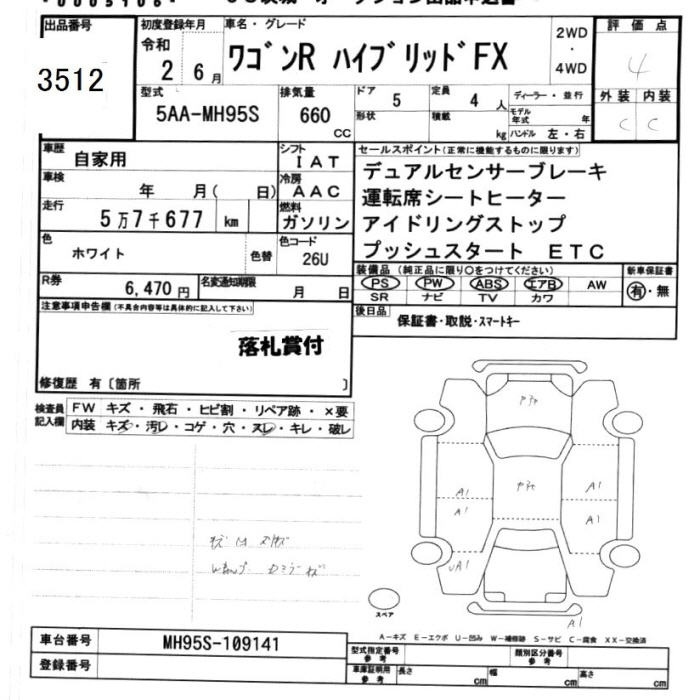 出品番号
3512
初度登録年月
令和
2年 6月
車名・グレード
ワゴンR ハイブリッドFX
2WD
・
4WD
評価点
4
型式
5AA-MH95S
排気量
660 CC
ドア 5
形状
定員 4 人
積載 kg
ディーラー・並行
モデル年式 年
ハンドル 左・右
外装 内装
C C
車歴 自家用
シフト IAT
車検 年 月( 日)
冷房 AAC
走行 5万7千677 km
燃料 ガソリン
色 ホワイト 色替
色コード 26U
R券 6,470円
名変通知期限 月 日
セールスポイント(正常に機能するものに限ります)
デュアルセンサーブレーキ
運転席シートヒーター
アイドリングストップ
プッシュスタート ETC
装備品 (純正品に限り○をつけてください)
PS PW ABS エアB AW
SR ナビ TV カワ
新車保証書
有・無
後日品
保証書・取説・スマートキー
注意事項申告欄(不具合内容等は具体的に記入して下さい)
落札賞付
修復歴 有〔箇所 〕
検査員記入欄
FW キズ・飛石・ヒビ割・リペア跡・×要
内装 キズ・汚レ・コゲ・穴・スレ・キレ・破レ
A1
A1
A1
A1
UA1
A1
スペア
A-キズ E-エクボ U-凹み W-補修跡 S-サビ C-腐食 XX-交換済
車台番号 MH95S-109141
登録番号
型式指定番号 参考
類別区分番号 参考
車庫証明用 参考
長さ cm 幅 cm 高さ cm